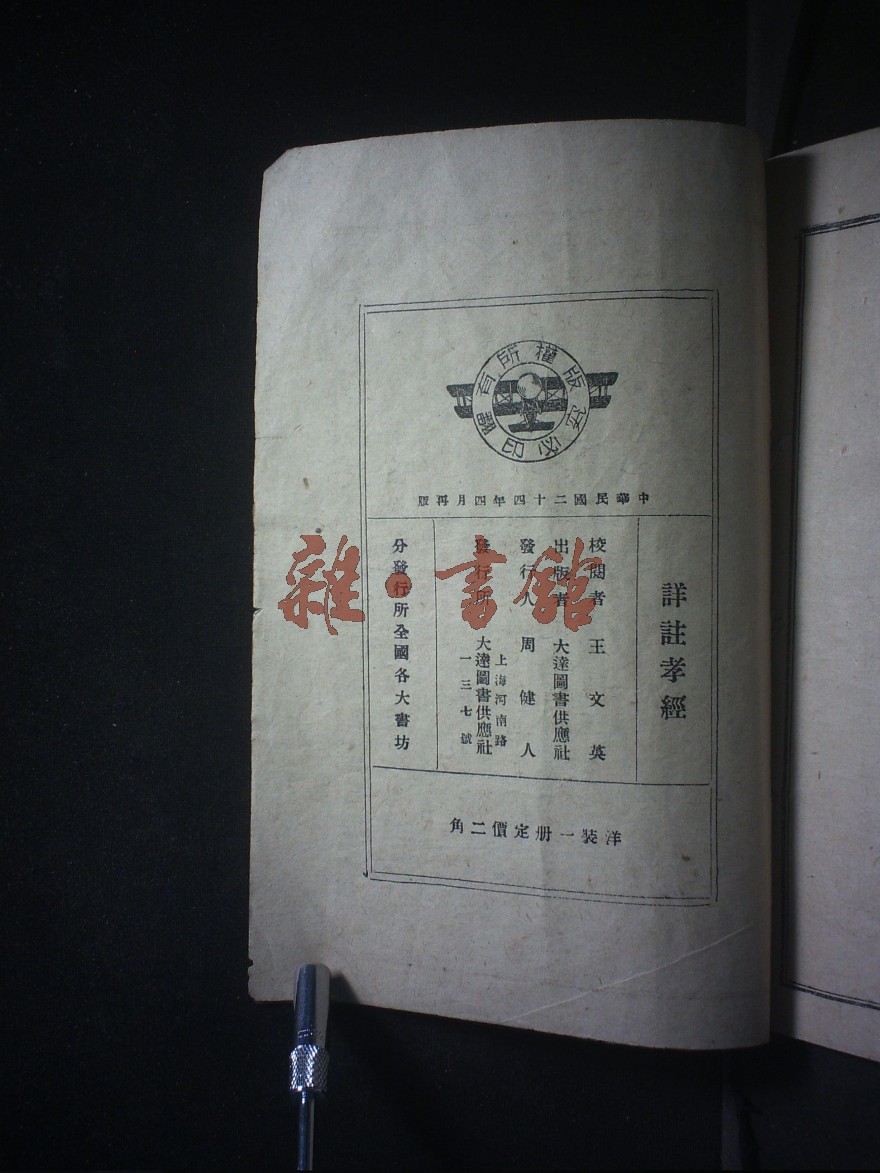 版權所有
翻印必究
中華民國二十四年四月再版
詳註孝經
校閱者 王文英
出版者 大達圖書供應社
發行人 周健人
上海河南路
發行所 大達圖書供應社
一三七號
分發行所全國各大書坊
洋裝一册定價二角
雜·書館